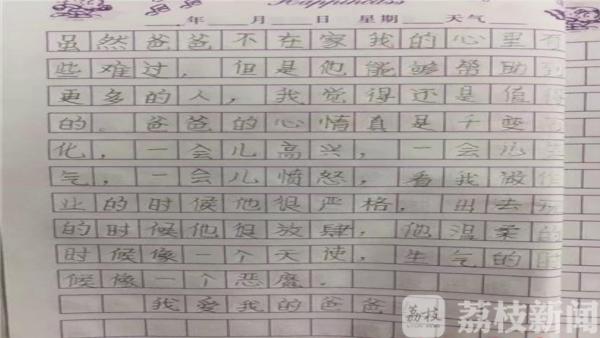 Happiness
年 月 日 星期 天气
虽然爸爸不在家我的心里有
些难过，但是他能够帮助到
更多的人，我觉得还是值得
的。爸爸的心情真是千变
化，一会儿高兴，一会儿
气，一会儿愤怒，看我做作
业的时候他很严格，出去玩
的时候他很放肆，他温柔的
时候像一个天使，生气的时
候像一个恶魔。
我爱我的爸爸
荔枝
荔枝新闻